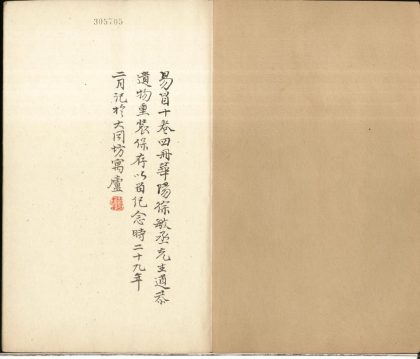 305705
易冒十卷四冊華陽徐敏丞先生適恭
遺物重裝保存以留紀念時二十九年
二月記於大同坊寓廬